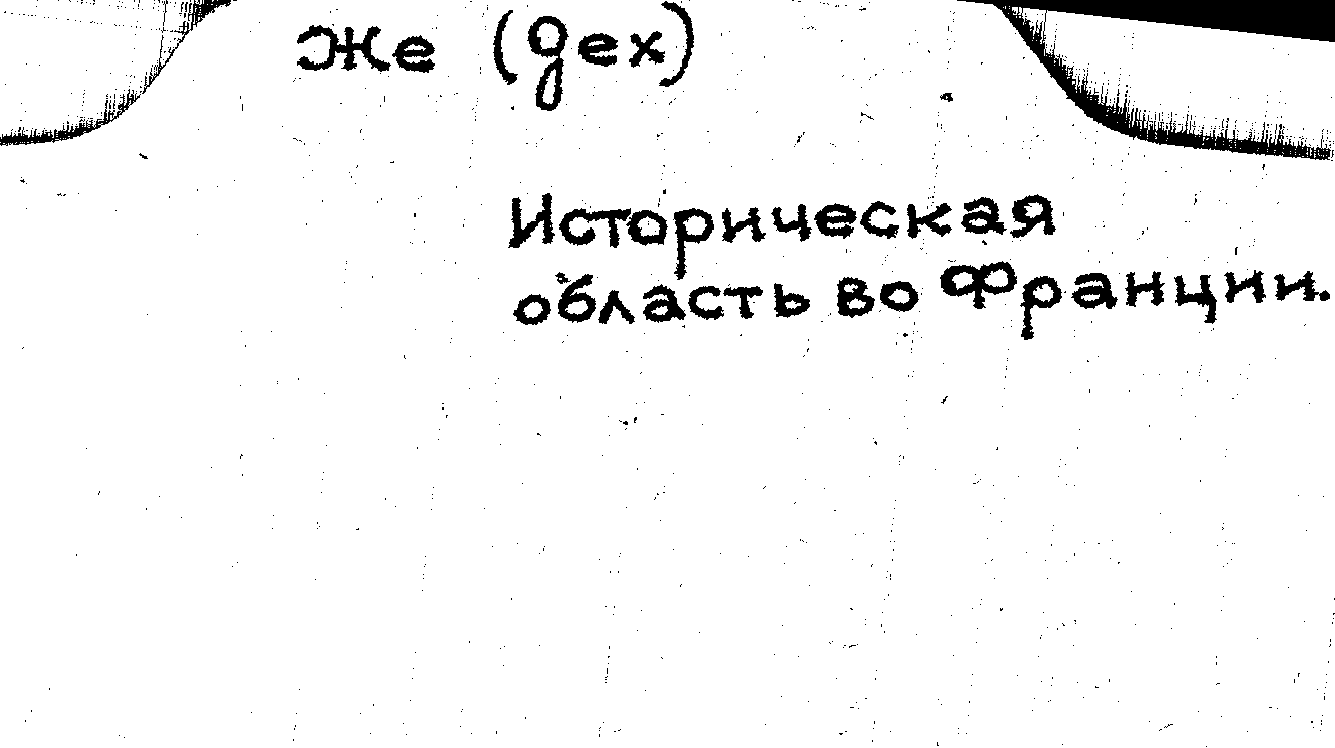 Же (gex)
Историческая
область во Франции.